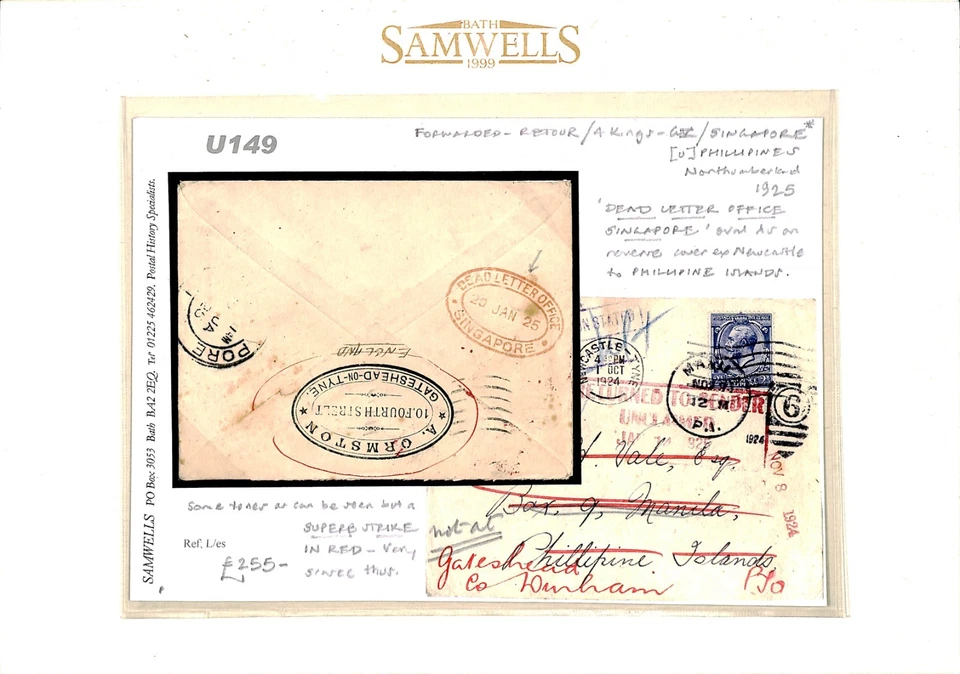 BATH
SAMWELLS
1999
U149
FORWARDED - RETOUR / 4 Kings - / SINGAPORE *
[U] PHILLIPINES
Northumberland
1925
'DEAD LETTER OFFICE
SINGAPORE' oval ds on
reverse cover ex Newcastle
to PHILLIPINE ISLANDS.
SAMWELLS PO Box 3053 Bath BA2 2EQ. Tel 01225 462429. Postal History Specialists.
DEAD LETTER OFFICE
20 JAN 25
SINGAPORE
PORE
JA
ENGLAND
A. ORMSTON
10. FOURTH STREET
GATESHEAD-ON-TYNE.
NEWCASTLE TYNE
4 PM
OCT
1924
MANILA
NOV
12 M
P.I.
1924
6
RETURNED TO SENDER
UNCLAIMED
JAN 1925
NOV 8 1924
Vale, Esq
Box 9, Manila,
not at
Phillipine Islands
Gateshead
Co Durham
PTO
Some tones as can be seen but a
SUPERB STRIKE
IN RED - Very
thus.
Ref, L/es
£255-